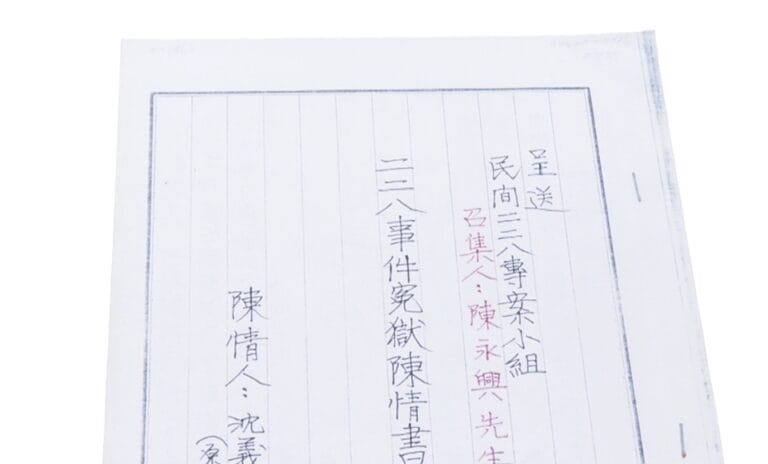 呈送
民間二二八專案小組
召集人：陳永興先生
二二八事件冤獄陳情書
陳情人：沈義